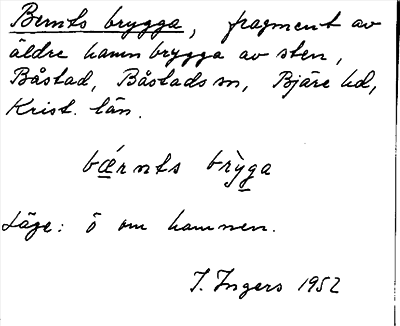 Bernts brygga, fragment av
äldre hamnbrygga av sten,
Båstad, Båstads sn, Bjäre hd,
Krist. län.
bǽrnts brỳga
Läge: ö om hamnen.
I. Ingers 1952